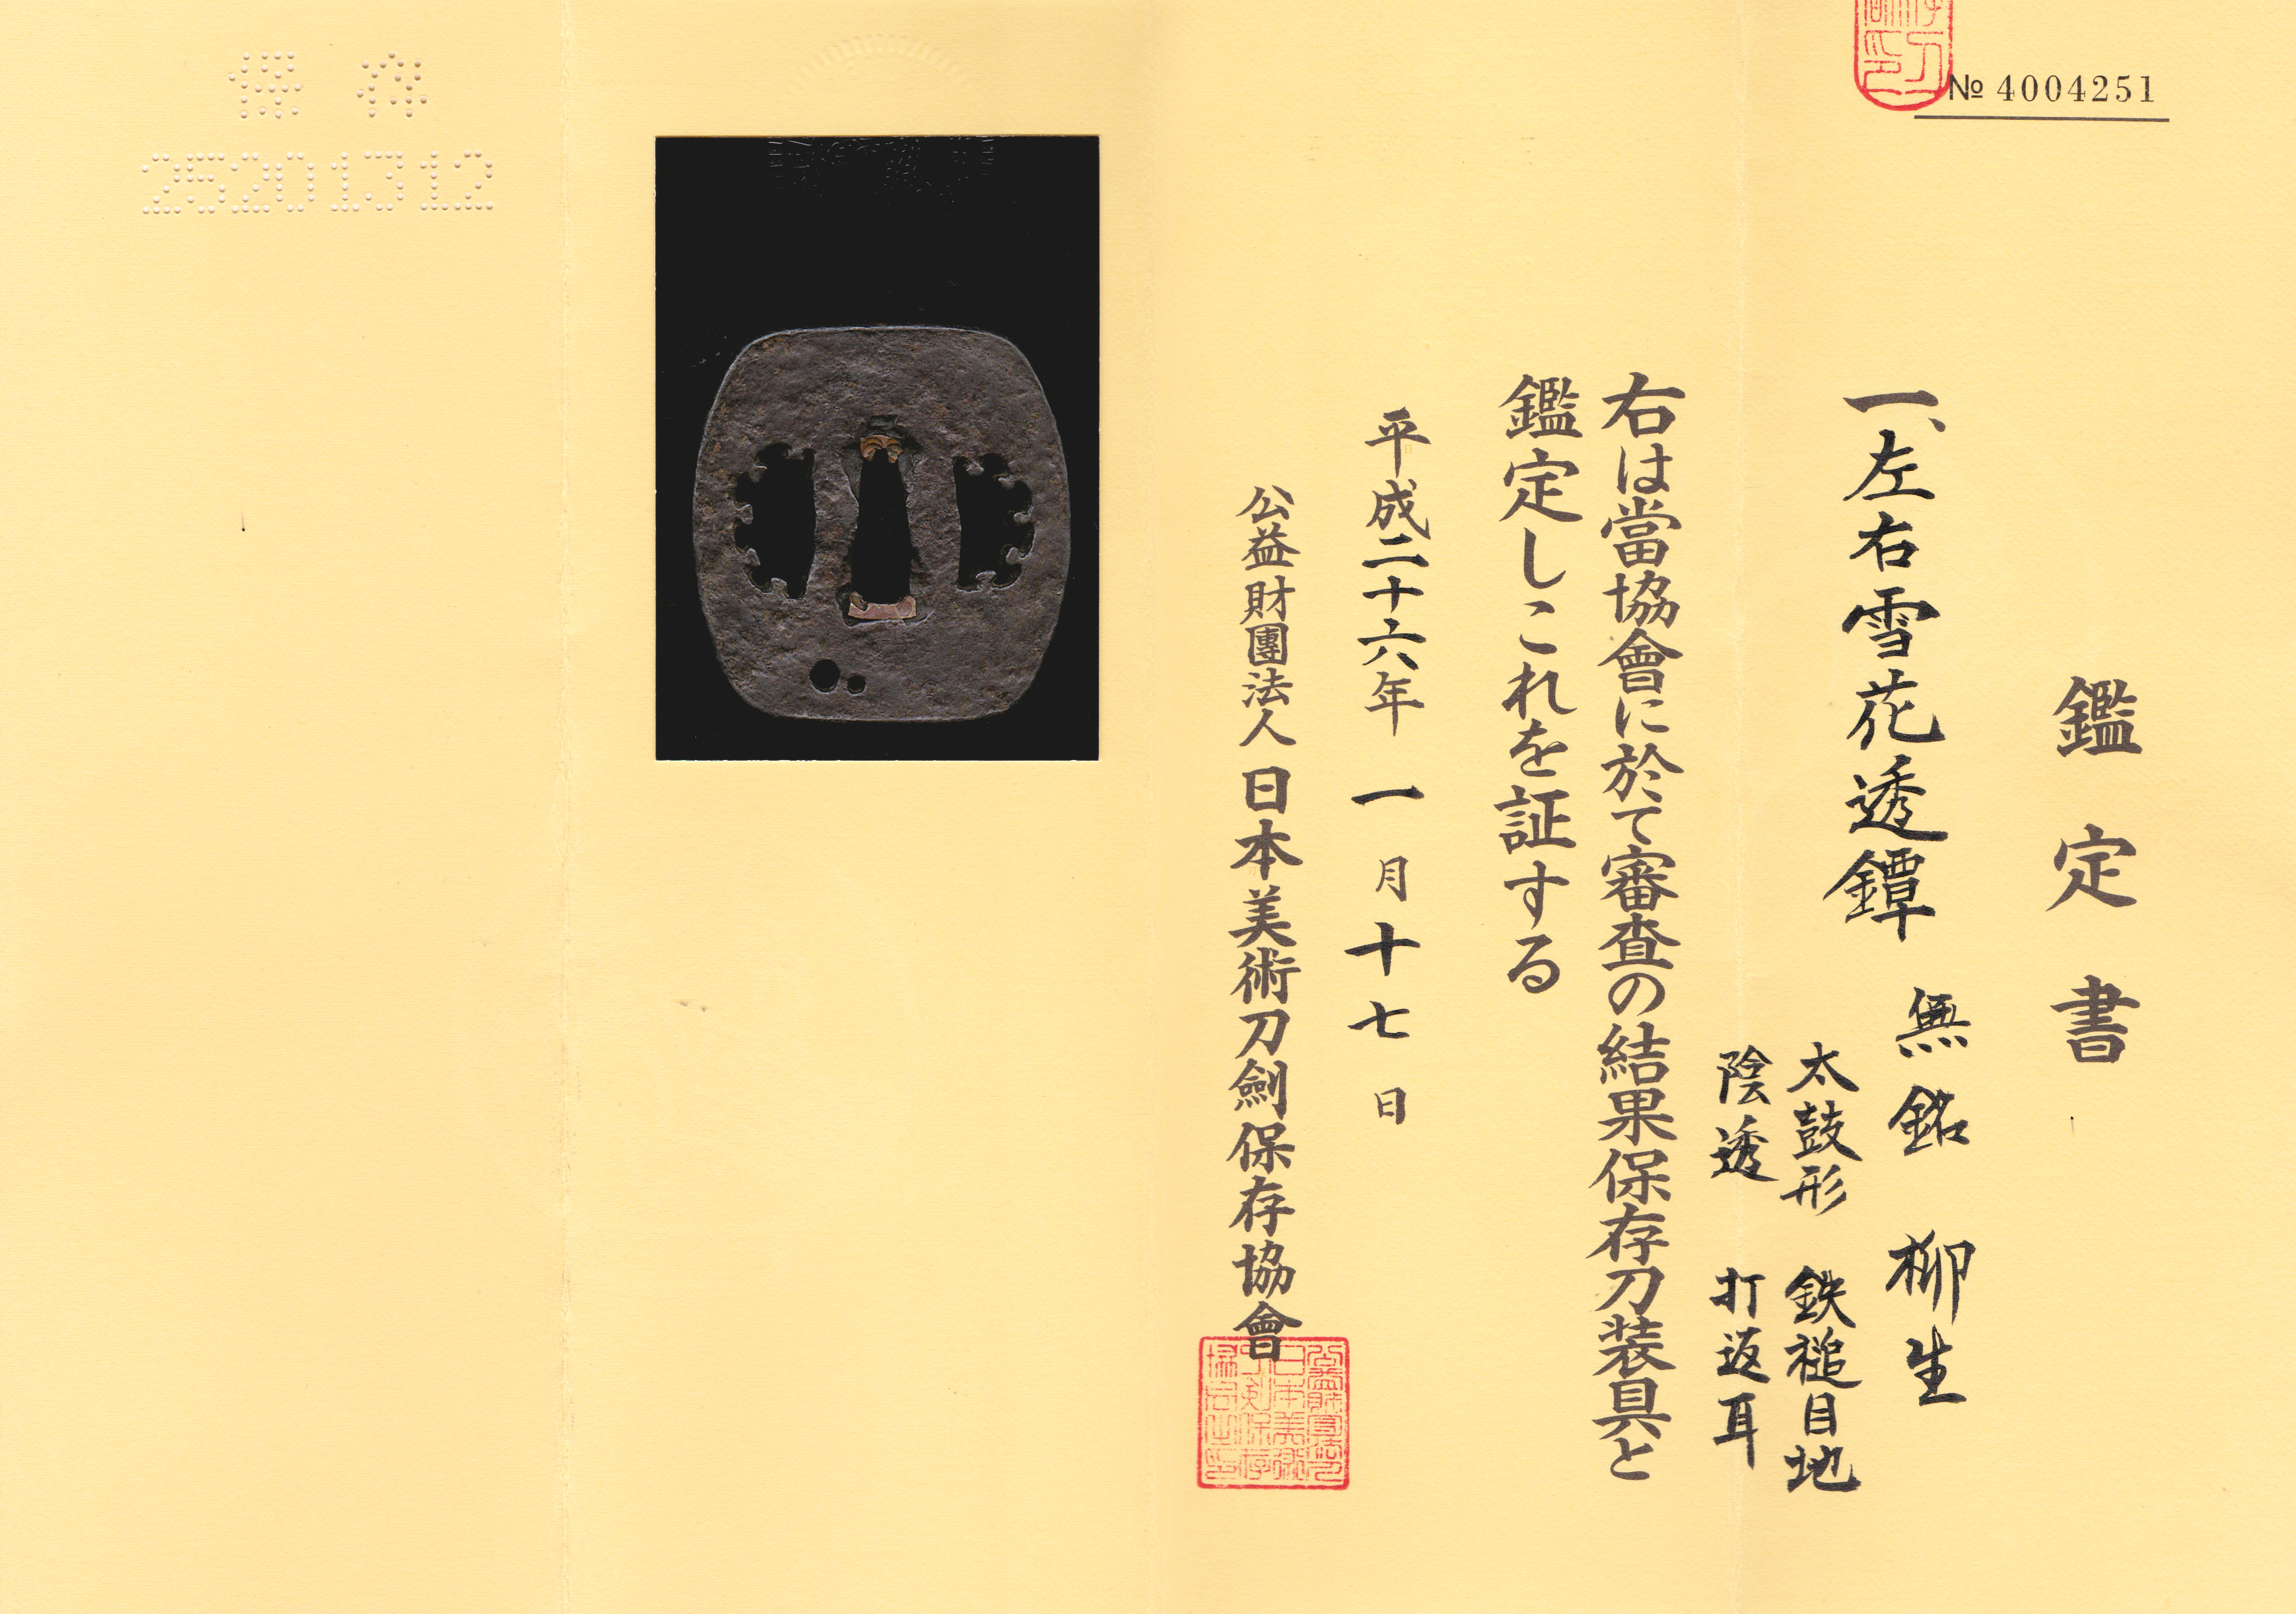 № 4004251
鑑定書
一、左右雪花透鐔
無銘 柳生
太鼓形 鉄槌目地
陰透 打返耳
右は當協會に於て審査の結果保存刀装具と
鑑定しこれを証する
平成二十六年 一月十七日
公益財團法人 日本美術刀劍保存協會
保存
25201312